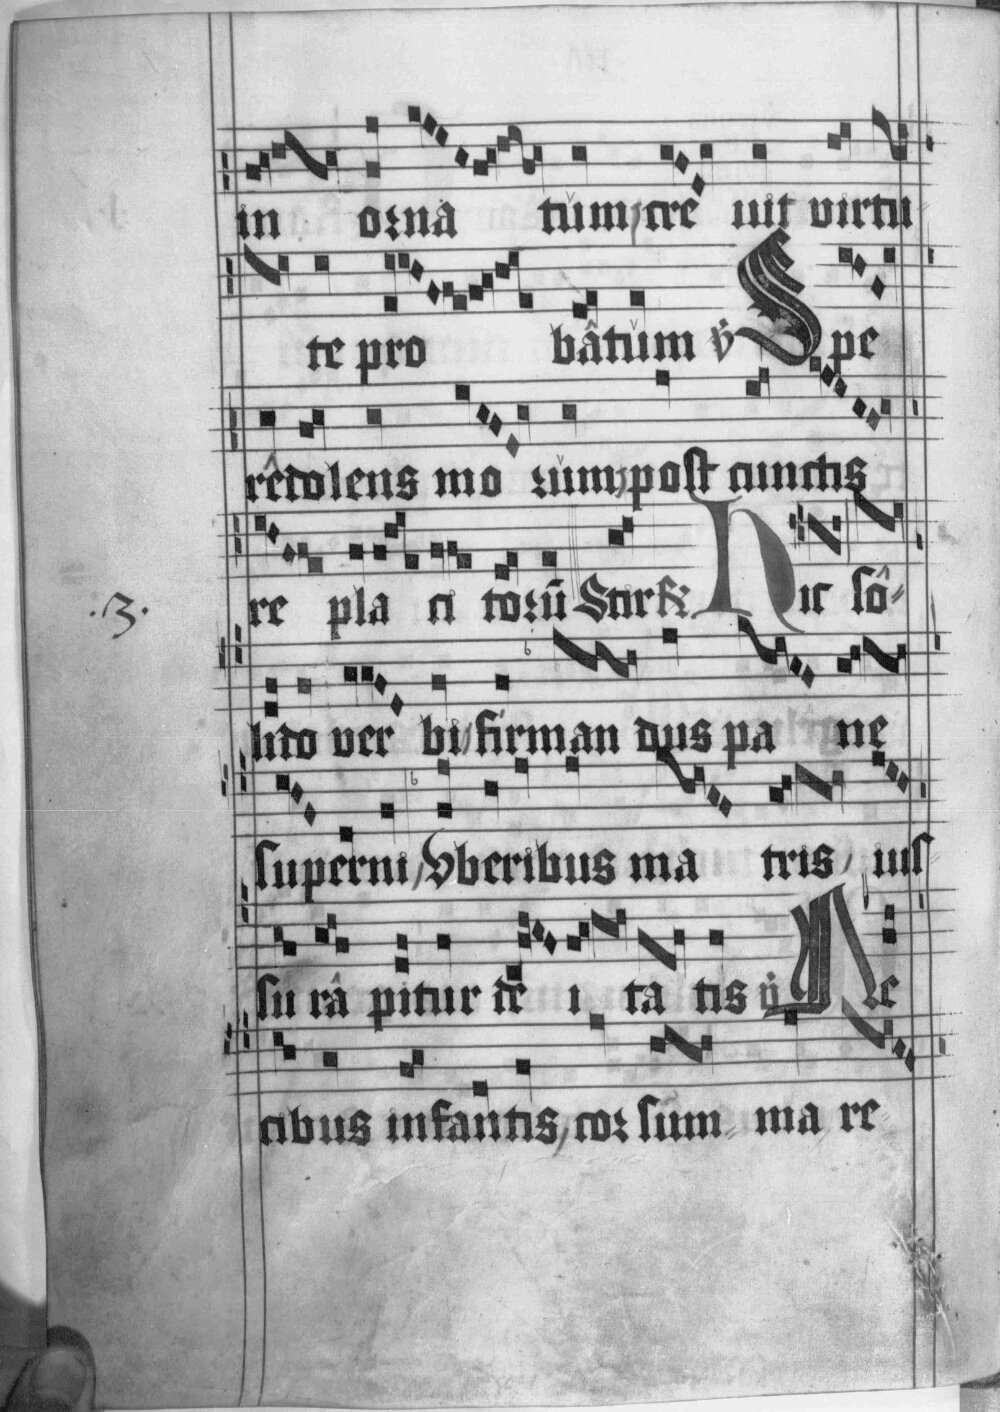 in orna tum, cre uit virtu
te pro bâtum ℣ Spe
rêdolens mo rum, post cunctis
re pla ci torū Stir℞ Hic sô-
.3.
lido ver bi, firman dus pa ne
superni, Vberibus ma tris, ius
su râ pitur de i ta tis ℣ Ne
cibus infantis, cor sum ma re